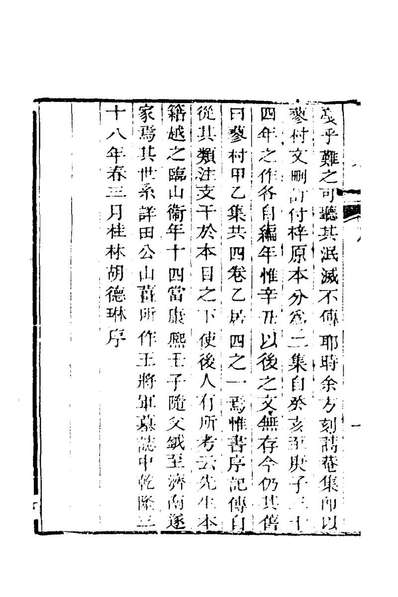 乎難之可聽其泯滅不傳耶時余方刻詩菴集即以
蓼村文刪訂付梓原本分爲二集自癸亥至庚子三十
四年之作各自編年惟辛丑以後之文無存今仍其舊
曰蓼村甲乙集共四卷乙居四之一焉惟書序記傳自
從其類注支干於本目之下使後人有所考云先生本
籍越之臨山衞年十四當康熙壬子隨父銊至濟南遂
家焉其世系詳田公山薑所作王將軍墓誌中乾隆三
十八年春三月桂林胡德琳序